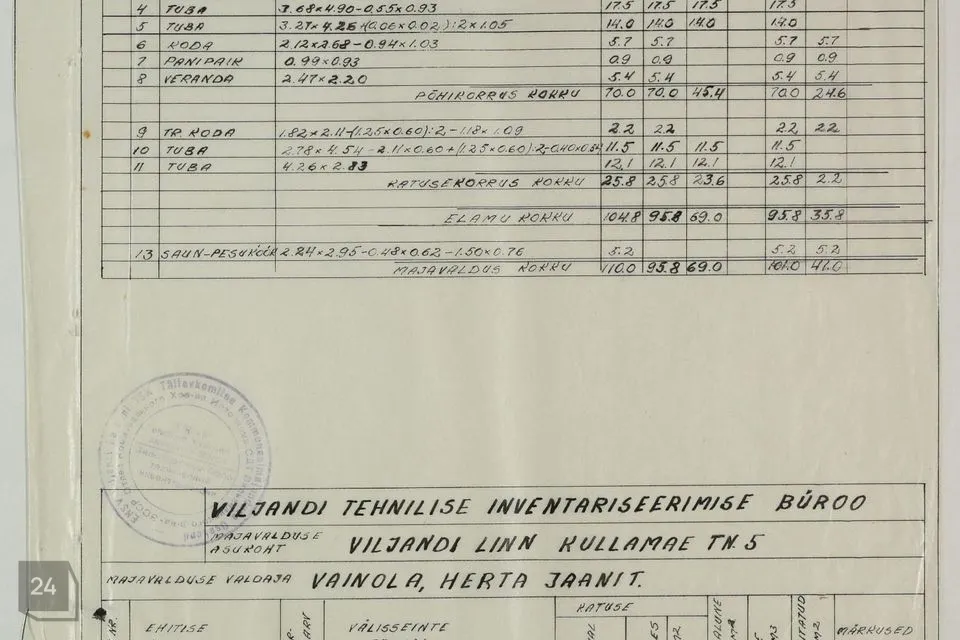 4 TUBA 3.68×4.90-0.55×0.93 17.5 17.5 17.5 17.5
5 TUBA 3.27×4.26+(0.06×0.02):2×1.05 14.0 14.0 14.0 14.0
6 KODA 2.12×2.68-0.94×1.03 5.7 5.7 5.7 5.7
7 PANIPAIK 0.99×0.93 0.9 0.9 0.9 0.9
8 VERANDA 2.47×2.20 5.4 5.4 5.4 5.4
PÕHIKORRUS KOKKU 70.0 70.0 45.4 70.0 24.6
9 TR. KODA 1.82×2.11-(1.25×0.60):2,-1.18×1.09 2.2 2.2 2.2 2.2
10 TUBA 2.78×4.54-2.11×0.60+(1.25×0.60):2,-0.40×0.54 11.5 11.5 11.5 11.5
11 TUBA 4.26×2.83 12.1 12.1 12.1 12.1
KATUSEKORRUS KOKKU 25.8 25.8 23.6 25.8 2.2
ELAMU KOKKU 104.8 95.8 69.0 95.8 35.8
13 SAUN-PESUKÖÖK 2.24×2.95-0.48×0.62-1.50×0.76 5.2 5.2 5.2
MAJAVALDUS KOKKU 110.0 95.8 69.0 101.0 41.0
VILJANDI TEHNILISE INVENTARISEERIMISE BÜROO
MAJAVALDUSE ASUKOHT VILJANDI LINN KULLAMAE TN. 5
MAJAVALDUSE VALDAJA VAINOLA, HERTA JAANIT.
24
KATUSE
NR. EHITISE VÄLISSEINTE MÄRKUSED